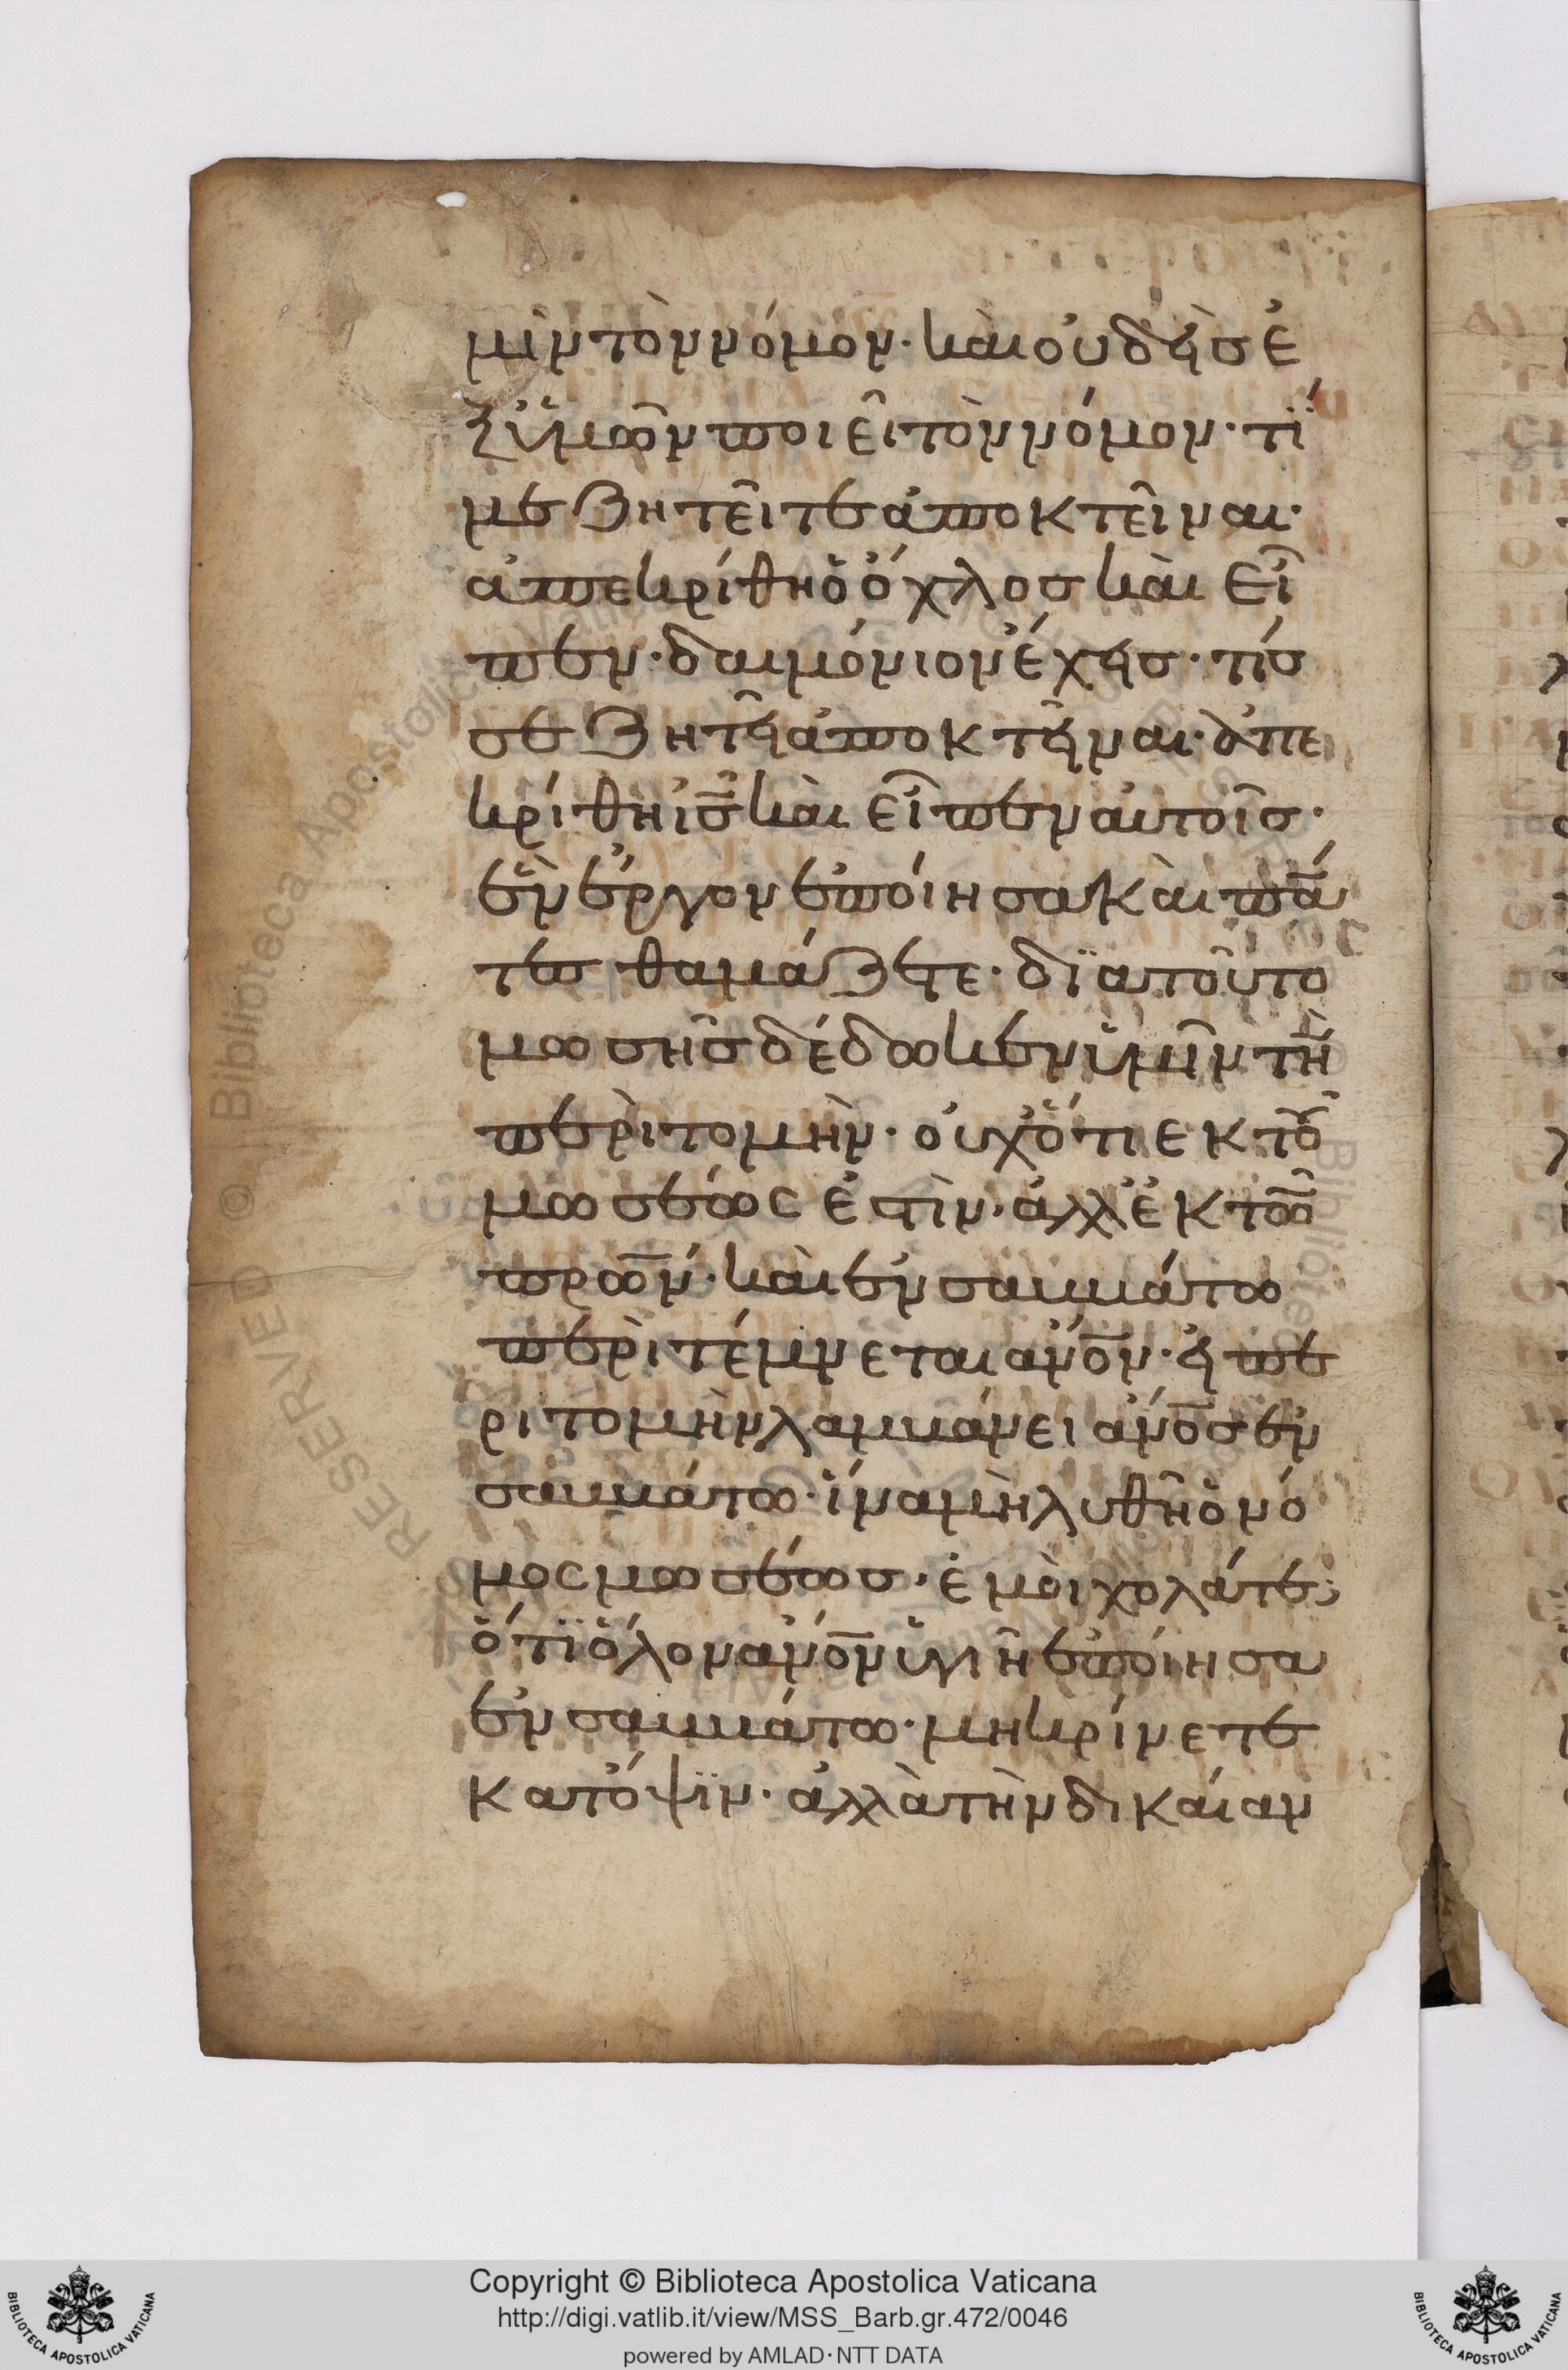 μὶν τὸν νόμον· καὶ οὐδὴς ἐ
ξ ὑμῶν ποιεῖ τὸν νόμον· τί
με ζητεῖτε ἀποκτεῖναι·
ἀπεκρίθη ὁ ὄχλος καὶ εἶ
πεν· δαιμόνιον ἔχεις· τίς
σε ζητεῖ ἀποκτεῖναι· ἀπε
κρίθη ὁ ις̅ καὶ εἶπεν αὐτοῖς·
ἓν ἔργον ἐποίησα καὶ πά
τες θαμάζετε· διατοῦτο
μωσῆς δέδωκεν ὑμῖν τὴ
περὶτομὴν· οὐχ ὅτι ἐκ τοῦ
μωσέως ἐστὶν· ἀλλ' ἐκ τῶ
πρω̅ν· καὶ ἐν σαββάτω
περὶτέμνεται ἀνο̅ν· εἰ πε
ριτομὴν λαμβάνει ἀνο̅ς ἐν
σαββάτω· ἵνα μὴ λυθῆ ὁ νό
μος μωσέως· ἐμοὶ χολάτε;
ὅτι ὅλον ἀνο̅ν ὑγιῆ ἐποίησα
ἐν σαββάτω· μὴ κρίνετε
κατ' ὄψιν· ἀλλὰ τὴν δικαίαν
RESERVED © Biblioteca Apostolica Vaticana
Copyright © Biblioteca Apostolica Vaticana
http://digi.vatlib.it/view/MSS_Barb.gr.472/0046
powered by AMLAD·NTT DATA
BIBLIOTECA APOSTOLICA VATICANA
BIBLIOTECA APOSTOLICA VATICANA